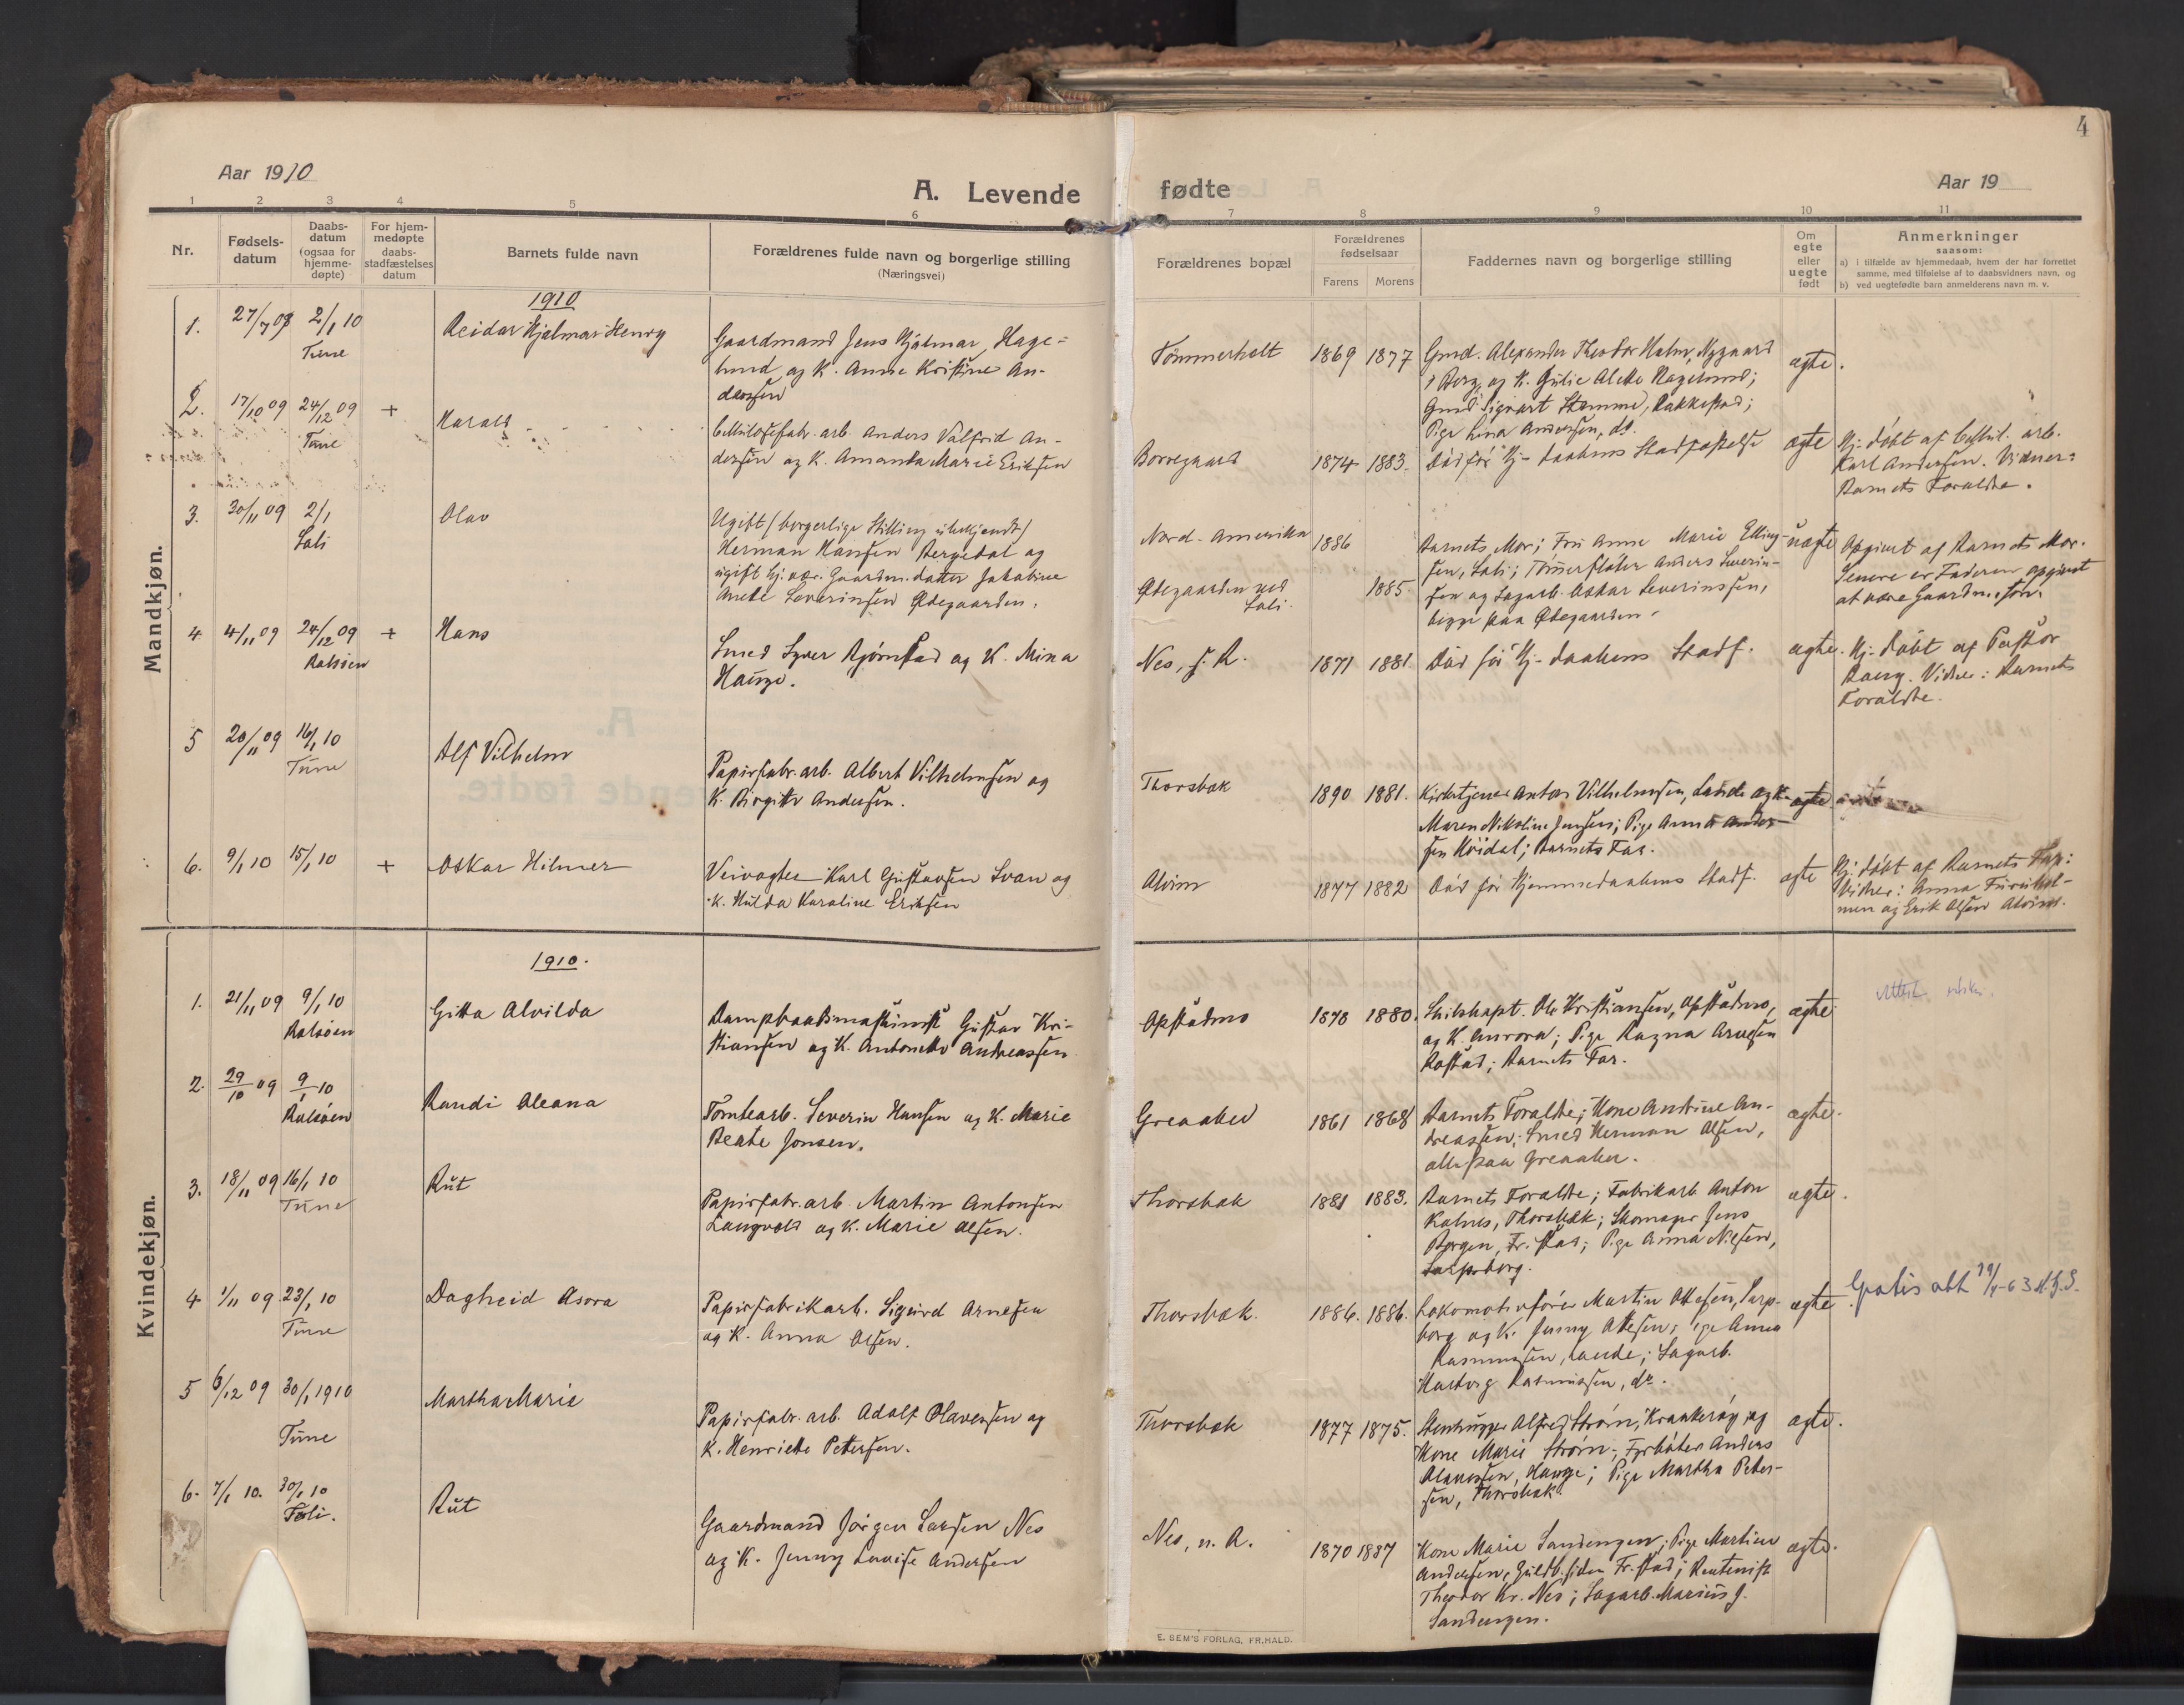 4
Aar 1910
A. Levende
fødte
Aar 19
1 2 3 4 5 6 7 8 9 10 11
Nr.
Fødsels-
datum
Daabs-
datum
(ogsaa for
hjemme-
døpte)
For hjem-
medøpte
daabs-
stadfæstelses
datum
Barnets fulde navn
Forældrenes fulde navn og borgerlige stilling
(Næringsvei)
Forældrenes bopæl
Forældrenes
fødselsaar
Farens Morens
Faddernes navn og borgerlige stilling
Om
egte
eller
uegte
født
Anmerkninger
saasom:
a) i tilfælde av hjemmedaab, hvem der har forrettet
samme, med tilføielse af to daabsvidners navn, og
b) ved uegtefødte barn anmelderens navn m. v.
Mandkjøn.
1910
1. 27/7 09 2/1 10
Tune
Reidar Hjalmar Henry
Gaardmand Jens Hjalmar Hage-
lund og K. Anne Kristine An-
dersen
Tømmerholt 1869 1877
Gmd. Alexander Theodor Holm, Nygaard
i Berg, og K. Gulie Alette Hagelund;
Gmd Sigvart Stamme, Rakkestad;
Pige Lina Andersen, do.
ægte.
2. 17/10 09 24/12 09 +
Tune
Harald
Cellulosefabr. arb. Anders Valfrid An-
dersen og K. Amanda Marie Eriksen
Borregaard 1874 1883.
Død før Hj-daabens Stadfæstelse
ægte
Hj-døbt af Cellul. arb.
Karl Andersen. Vidner:
Barnets Forældre.
3. 30/11 09 2/1
Soli
Olav
Ugift (borgerlige Stilling ubekjendt)
Herman Hansen Bergedal og
ugift hj. vær. Gaardm. datter Jakobine
Anette Severinsen Ødegaarden.
Nord-Amerika 1886
Ødegaarden ved 1885.
Soli.
Barnets Mor; Fru Anne Marie Elling-
sen, Soli; Tømmerfløter Anders Severin-
sen og Sagarb. Oskar Severinsen,
begge paa Ødegaarden.
uægte
Opgivet af Barnets Mor.
Senere er Faderen opgivet
at være Gaardm. søn.
4 4/11 09 24/12 09 +
Rolsøen
Hans
Smed Syver Bjørnstad og K. Mina
Hauge.
Nes, s. R. 1871 1881
Død før Hj-daabens Stadf.
ægte.
Hj-døbt af Pastor
Vidner: Barnets
Forældre.
5 20/11 09 16/1 10
Tune
Alf Vilhelm
Papirfabr. arb. Albert Vilhelmsen og
K. Birgitte Andersen.
Thorsbæk 1890 1881.
Kirketjener Anton Vilhelmsen, Lande og K.
Maren Nikoline Jensen; Pige Anna Ander-
sen Hvidal; Barnets Far.
ægte
6. 9/1 10 15/1 10 +
Oskar Hilmer
Veivogter Karl Gustavsen Svan og
K. Hulda Karoline Eriksen
Alvim 1877 1882
Død før Hjemmedaabens Stadf.
ægte
Hj. døbt af Barnets Far:
Vidner: Anna Furuhol-
men og Erik Olsen Alvim.
Kvindekjøn.
1910.
1. 21/11 09 9/1 10
Rolsøen
Gitta Alvilda
Dampbaadsmaskinist Gustav Kri-
stiansen og K. Antonette Andreassen
Opstadmo 1878 1880.
Skibskapt. Ole Kristiansen, Opstadmo,
og K. Aurora; Pige Ragna Arnesen
Rostad; Barnets Far.
ægte
2. 29/10 09 9/1 10
Rolsøen
Randi Oleana
Tomtearb. Severin Hansen og K. Marie
Beate Jonsen.
Greaaker 1861 1868
Barnets Forældre; Kone Andrine An-
dreassen; Smed Herman Olsen,
alle paa Greaaker.
ægte.
3. 18/11 09 16/1 10
Tune
Rut
Papirfabr. arb. Martin Antonsen
Langvold og K. Marie Olsen.
Thorsbæk 1881 1883.
Barnets Forældre; Fabrikarb. Anton
Kalnes, Thorsbæk; Skomager Jens
Borgen, Fr. stad; Pige Anna Nilsen,
Sarpsborg.
ægte.
4 1/11 09 23/1 10
Tune
Dagheid Asora
Papirfabrikarb. Sigurd Arnesen
og K. Anna Olsen.
Thorsbæk. 1886. 1886.
Lokomotivfører Martin Ottesen, Sarp-
borg og K. Jenny Ottesen; Pige Anna
Rasmussen, Lande; Sagarb.
Rasmussen, do.
ægte.
Gratis att
5 6/12 09 30/1 1910
Tune
Martha Marie
Papirfabr. arb. Adolf Olavesen og
K. Henriette Pettersen.
Thorsbæk 1877 1875.
Stenhugger Alfred Strøm, Kraakerøy, og
Kone Marie Strøm; Fyrbøter Anders
Olavesen, Hauge; Pige Martha Peter-
sen, Thorsbæk.
ægte.
6. 7/1 10. 30/1 10
Soli.
Rut
Gaardmand Jørgen Larsen Nes
og K. Jenny Lovise Andersen
Nes, n. R. 1870 1887
Kone Marie Sandengen; Pige Martine
Andersen, Guldb.siden Fr. stad; Rentenist
Theodor Kr. Nes; Sagarb. Marius J.
Sandengen.
ægte.
E. SEM'S FORLAG, FR.HALD.